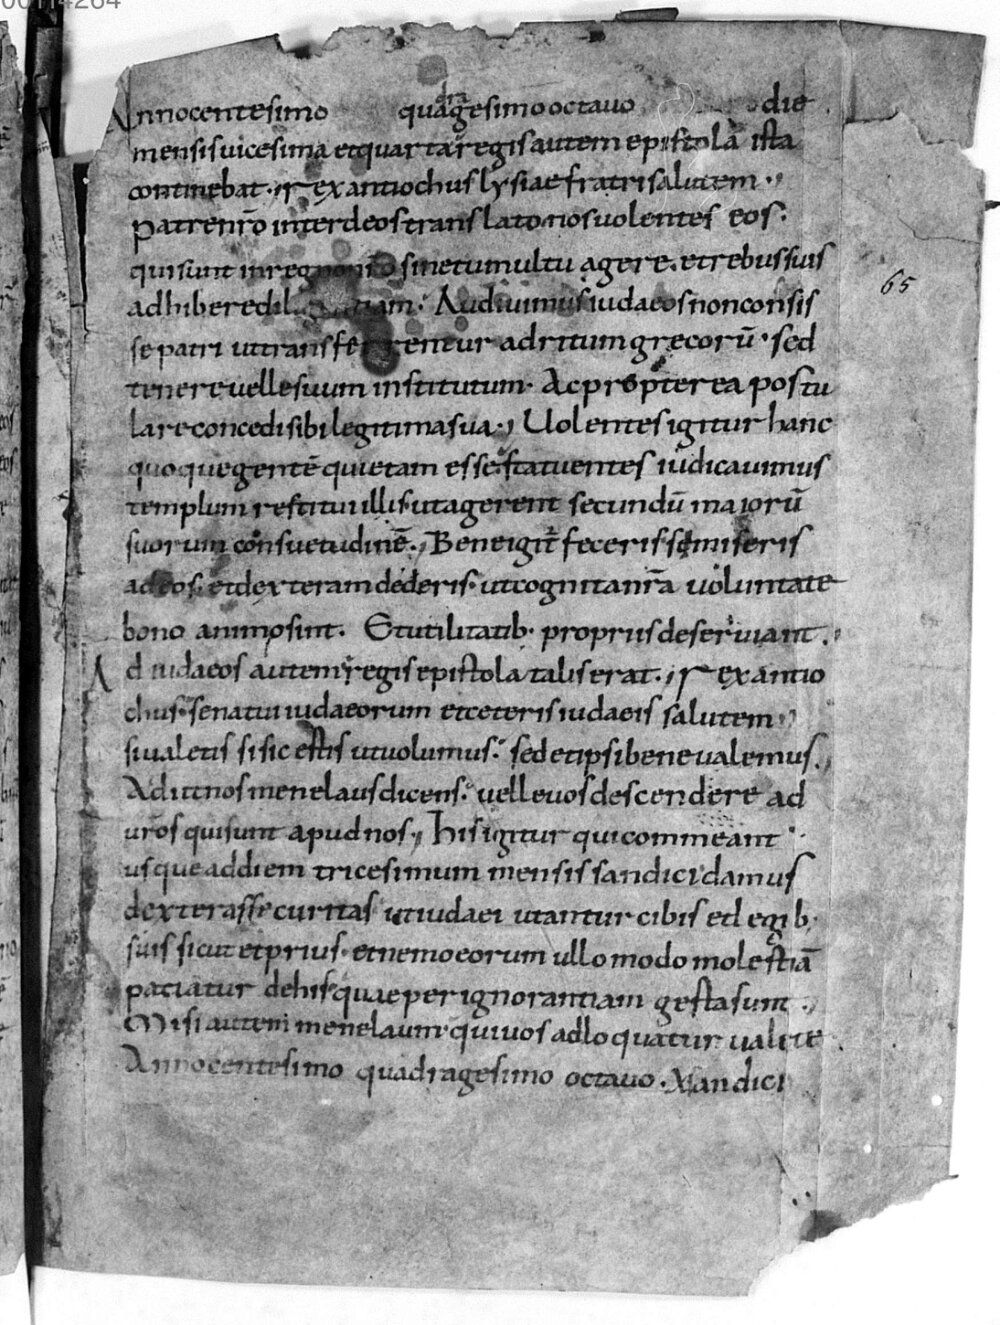 00114264
Annocentesimo quadragesimo octauo die
mensis uicesima et quarta regis autem epistola ista
continebat. rex antiochus lysiae fratri salutem.
Patre nr̄o inter deos translato nos uolentes eos.
qui sunt in regno nr̄o sine tumultu agere. et rebus suis
adhibere diligentiam. Audiuimus iudaeos non consis
se patri ut transferrentur ad ritum grecorū. sed
tenere uelle suum institutum. Ac propterea postu
lare concedi sibi legitima sua. Uolentes igitur hanc
quoque gentē quietam esse. statuentes iudicauimus
templum restitui illis. ut agerent secundū maiorū
suorum consuetudinē. Bene igit̄ feceris si miseris
ad eos. et dexteram dederis. ut cognita nr̄a uoluntate
bono animo sint. Et utilitatib. propriis deseruiant.
Ad iudaeos autem regis epistola talis erat. rex antio
chus. senatui iudaeorum et ceteris iudaeis salutem
si ualetis si sic estis ut uolumus. sed et ipsi bene ualemus.
Adiit nos menelaus dicens. uelle uos descendere ad
ur̄os qui sunt apud nos. His igitur qui commeant
usque ad diem tricesimum mensis sandici damus
dexteras securitas ut iudaei utantur cibis et legib.
suis sicut et prius. et nemo eorum ullo modo molestiā
patiatur de his quae per ignorantiam gesta sunt.
Misi autem menelaum qui uos adloquatur ualete
Anno centesimo quadragesimo octauo. Xandici
65